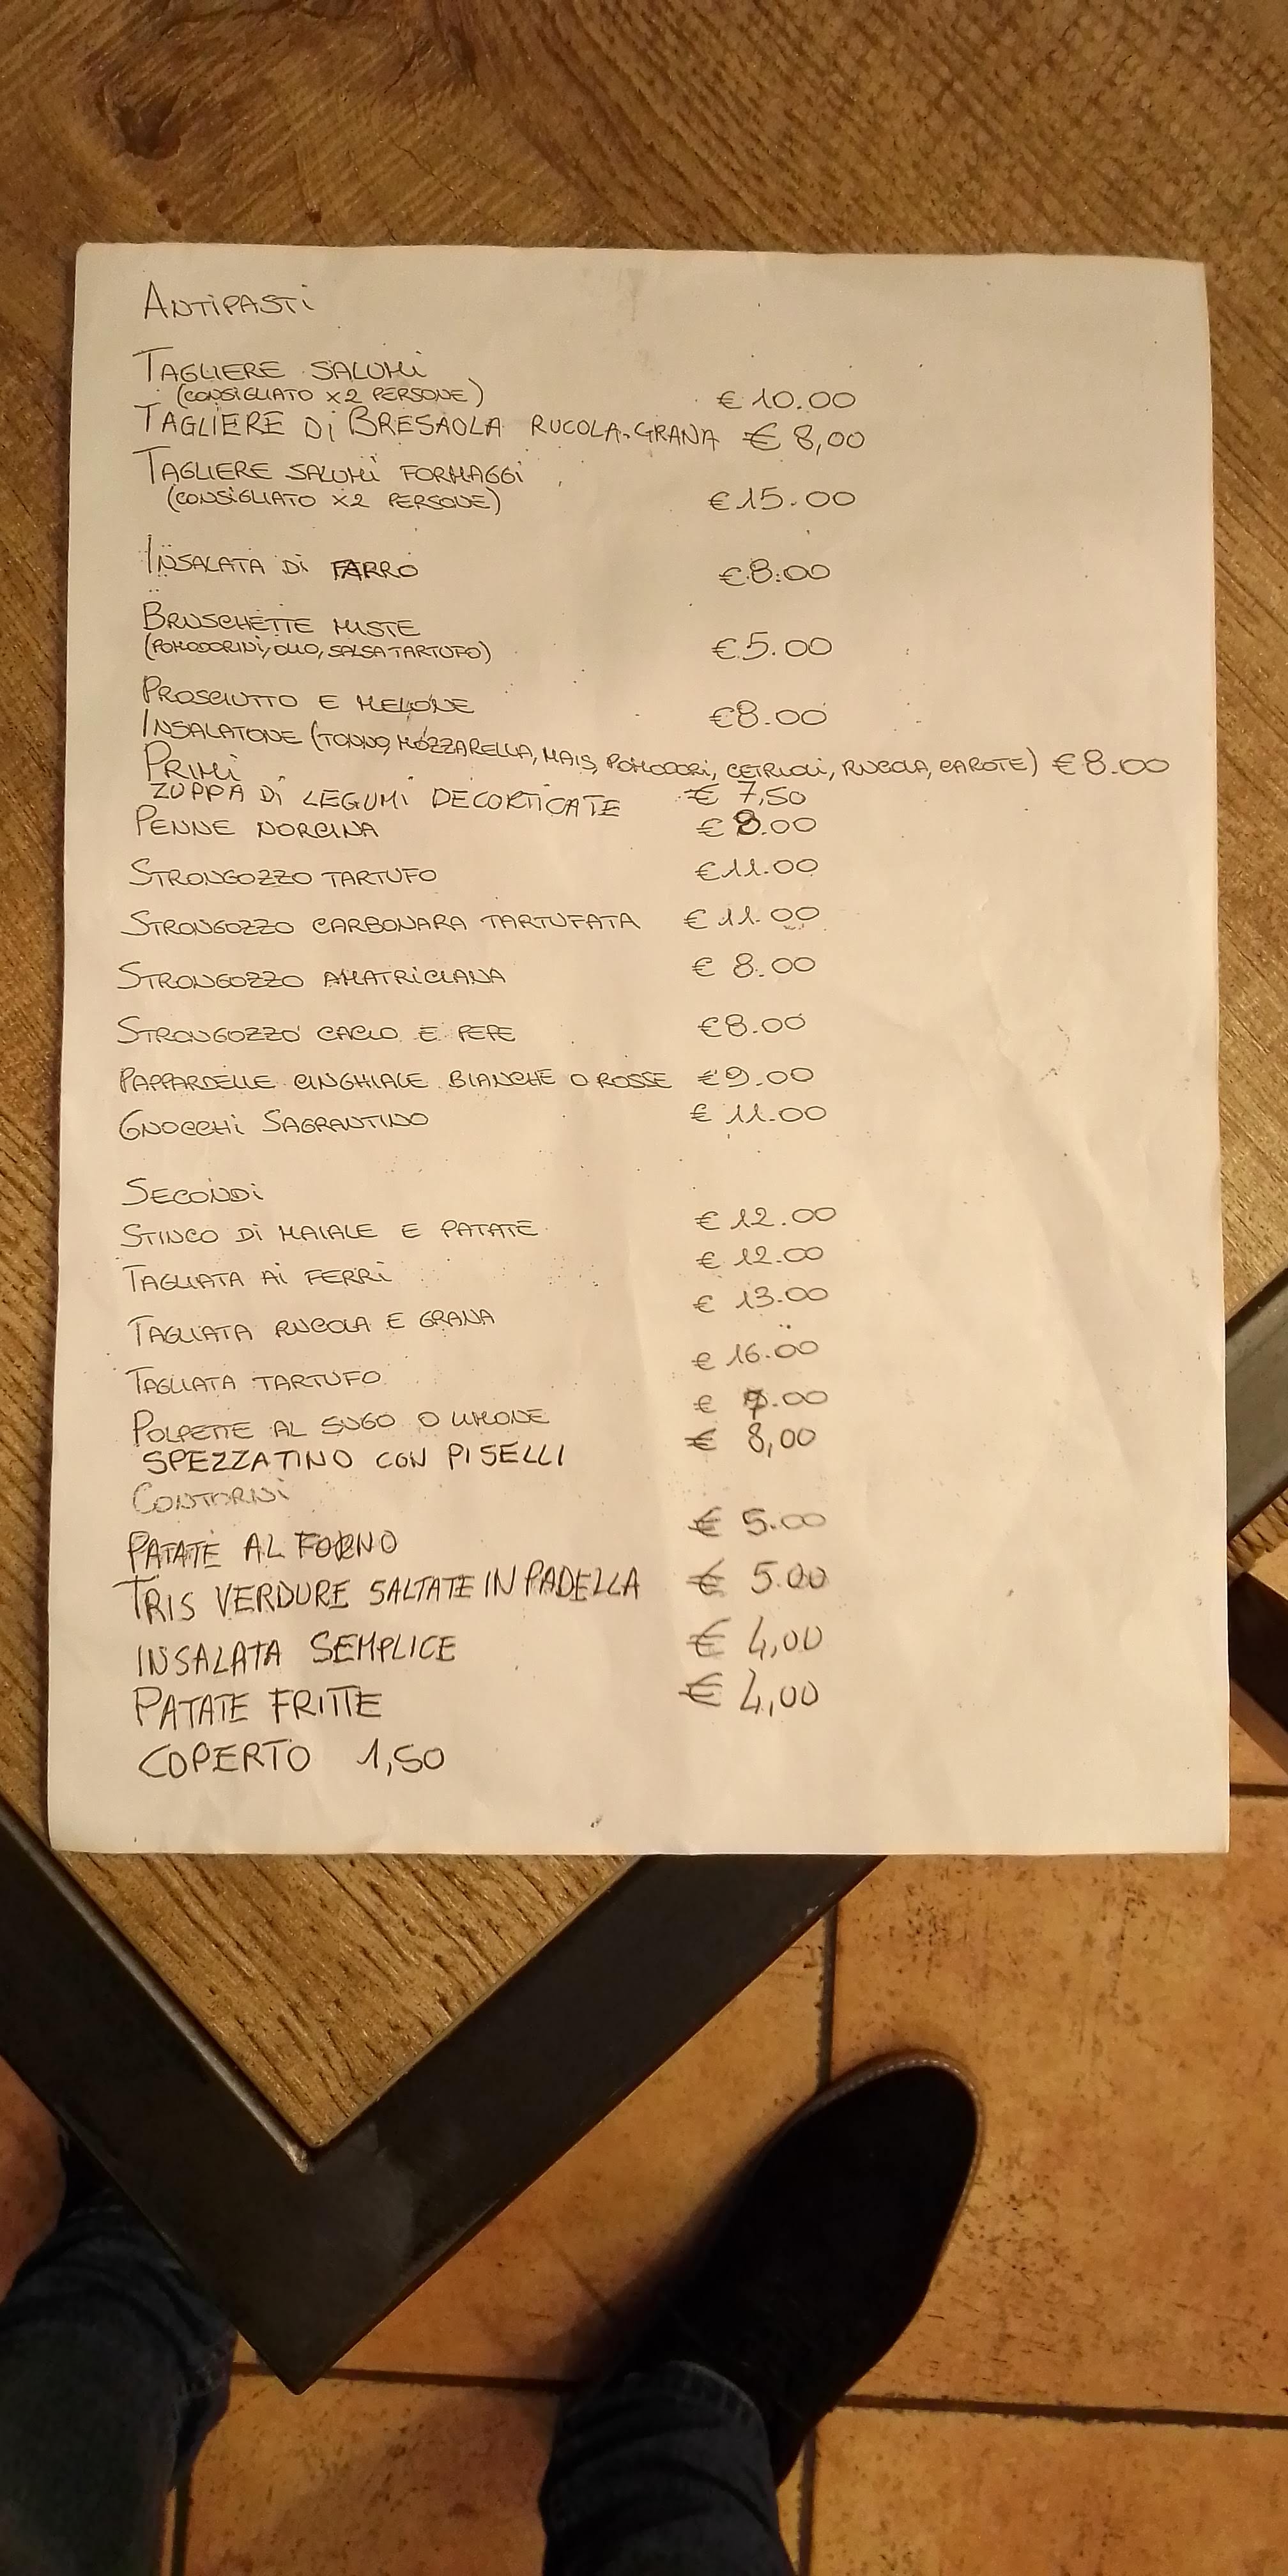 ANTIPASTI
TAGLIERE SALUMI
(CONSIGLIATO X2 PERSONE) € 10.00
TAGLIERE Di BRESAOLA RUCOLA-GRANA € 8,00
TAGLIERE SALUMI FORMAGGI
(CONSIGLIATO X2 PERSONE) € 15.00
INSALATA DI FARRO € 8.00
BRUSCHETTE MISTE
(POMODORINI, OLIO, SALSA TARTUFO) € 5.00
PROSCIUTTO E MELONE € 8.00
INSALATONE (TONNO, MOZZARELLA, MAIS, POMODORI, CETRIOLI, RUCOLA, CAROTE) € 8.00
PRIMI
ZUPPA DI LEGUMI DECORTICATE € 7,50
PENNE NORCINA € 8.00
STRONGOZZO TARTUFO € 11.00
STRONGOZZO CARBONARA TARTUFATA € 11.00
STRONGOZZO AMATRICIANA € 8.00
STRONGOZZO CACIO E PEPE € 8.00
PAPPARDELLE CINGHIALE BIANCHE O ROSSE € 9.00
GNOCCHI SAGRANTINO € 11.00
SECONDI
STINCO DI MAIALE E PATATE € 12.00
TAGLIATA AI FERRI € 12.00
TAGLIATA RUCOLA E GRANA € 13.00
TAGLIATA TARTUFO € 16.00
POLPETTE AL SUGO O LIMONE €
SPEZZATINO CON PISELLI € 8,00
CONTORNI
PATATE AL FORNO € 5.00
TRIS VERDURE SALTATE IN PADELLA € 5.00
INSALATA SEMPLICE € 4,00
PATATE FRITTE € 4,00
COPERTO 1,50